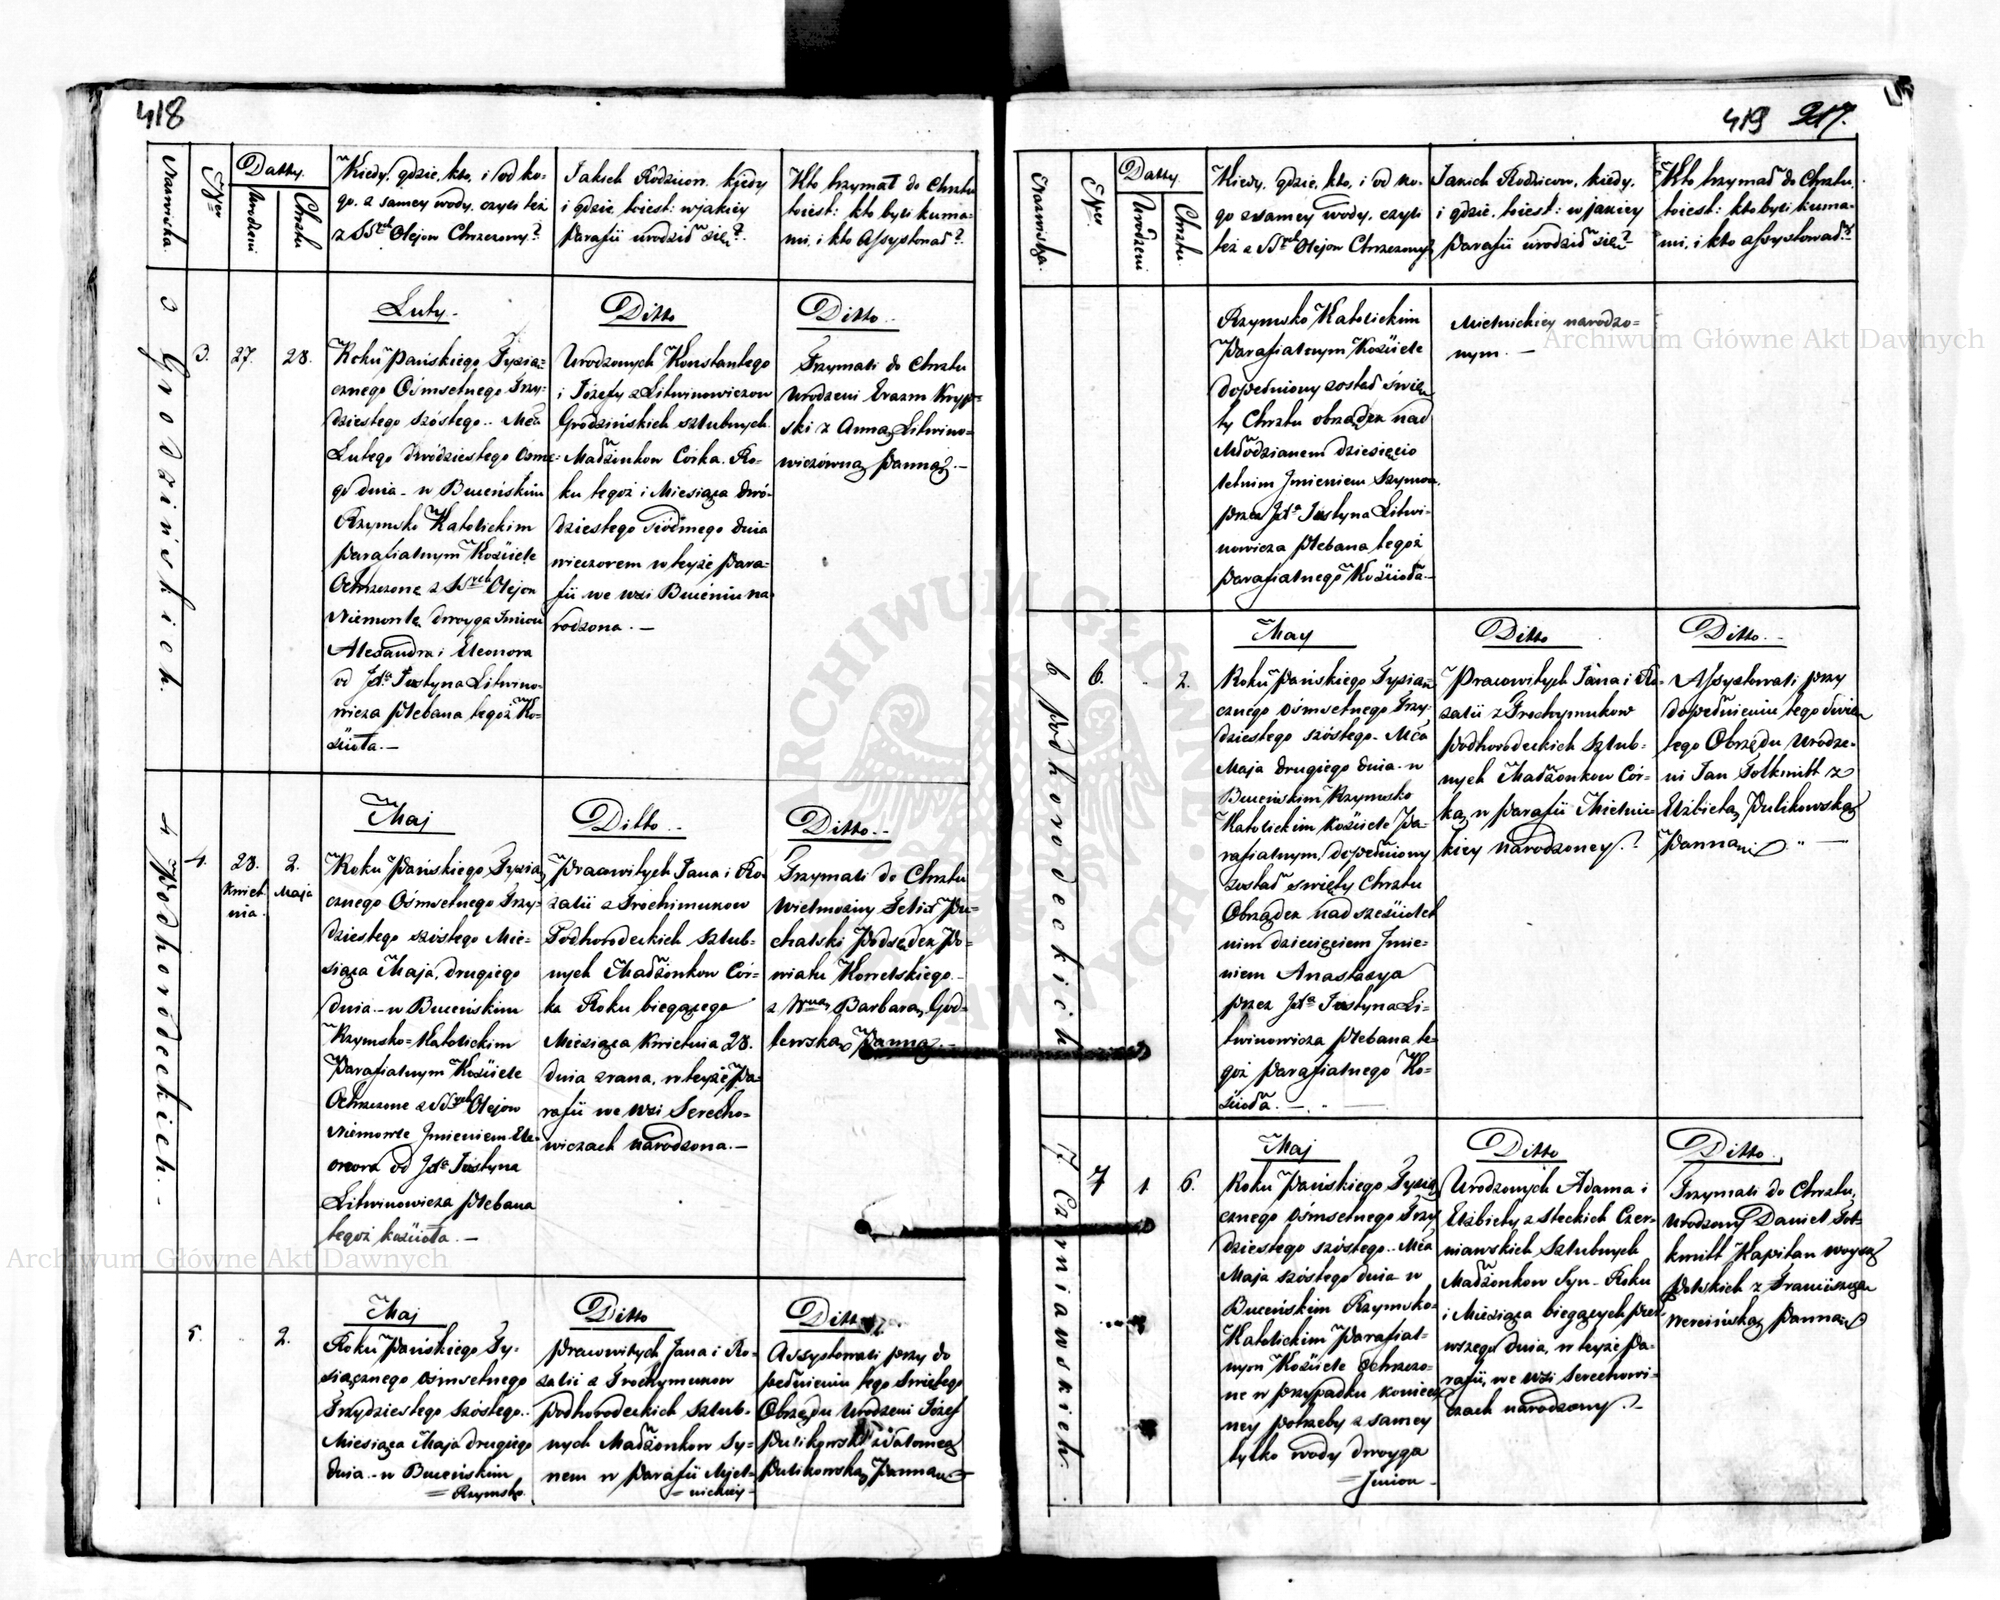 418
Nazwiska.
Nmer
Datty.
Urodzeni
Chrztu
Kiedy, gdzie, kto, i od ko-
go, z samey wody, czyli też
z SSrch Olejow Chrzczony?
Jakich Rodziców, kiedy
i gdzie, toiest: w jakiey
Parafii urodził się?
Kto trzymał do Chrztu
toiest: kto byli kuma-
mi, i kto assystował?
3 Grodzińskich.
3.
27.
28.
Luty.
Roku Pańskiego Tysią-
cznego Ośmsetnego Trzy-
dziestego szóstego.. Mca
Lutego dwódziestego ósme-
go dnia - w Buceńskim
Rzymsko Katolickim
Parafialnym Kościele
Ochrzczone z SSrch Olejow
Niemowle dwoyga Imion
Alexandra i Eleonora
od Jdа Justyna Litwino-
wicza Plebana tegoż Ko-
ścioła. —
Ditto
Urodzonych Konstantego
i Józefy z Litwinowiczow
Grodzińskich szlubnych
Małżonkow Córka. Ro-
ku tegoż i Miesiąca dwó-
dziestego siódmego dnia
wieczorem w teyże Para-
fii we wsi Buceniu na-
rodzona. —
Ditto.
Trzymali do Chrztu
Urodzeni Erazm Kryp-
ski z Anną Litwino-
wiczówną Panną. —
4 Podhorodeckich. -
4.
28.
Kwiet
nia.
2.
Maja
Maj
Roku Pańskiego Tysią
cznego Ośmsetnego Trzy-
dziestego szóstego Mie-
siąca Maja, drugiego
dnia - w Buceńskim
Rzymsko-Katolickim
Parafialnym Kościele
Ochrzczone z SSrch Olejow
Niemowle Jmieniem Ele-
onora od Jdа Justyna
Litwinowicza Plebana
tegoż kościoła. —
Ditto.
Pracowitych Jana i Ro-
zalii z Trochimukow
Podhorodeckich Szlub-
nych Małżonkow Cór-
ka Roku biegącego
Miesiąca Kwietnia 28.
dnia zrana, w teyże Pa-
rafii we wsi Serecho-
wiczach narodzona. —
Ditto.
Trzymali do Chrztu
Wielmożny Felix Pu-
chalski Podsędek Po-
wiatu Kowelskiego
z Wną Barbarą God-
lewską Panną. —
5.
2.
Maj
Roku Pańskiego Ty-
siącznego Ośmsetnego
Trzydziestego Szóstego..
Miesiąca Maja drugiego
dnia - w Buceńskim
= Rzymsko
Ditto
Pracowitych Jana i Ro-
zalii z Trochymukow
Podhorodeckich Szlub-
nych Małżonkow Sy-
nem w Parafii Mjel-
= nickiey
Ditto
Assystowali przy do
pełnieniu tego Swiętego
Obrzędu Urodzeni Józef
Pulikowski z Salomeą
Pulikowską Panną
419 217.
Nazwiska.
Nmer.
Datty.
Urodzeni
Chrztu
Kiedy, gdzie, kto, i od ko-
go z samey wody, czyli
też z SSrch Olejow Chrzczony?
Jakich Rodzicow, kiedy,
i gdzie, toiest: w jakiey
Parafii urodził się?
Kto trzymał do Chrztu,
toiest: kto byli kuma-
mi, i kto assystował?
Rzymsko Katolickim
Parafialnym Kościele
dopełniony został świę-
ty Chrztu obrządek nad
Młodzianem dziesięcio
letnim Jmieniem Szymon,
przez Jdа Justyna Litwi-
nowicza Plebana tegoż
Parafialnego Kościoła. —
Mielnickiey narodzo-
nym. —
6 Podhorodeckich
6.
2.
May
Roku Pańskiego Tysią-
cznego Ośmsetnego Trzy-
dziestego szóstego - Mca
Maja drugiego dnia - w
Buceńskim Rzymsko
Katolickim Kościele Pa-
rafialnym, dopełniony
został święty Chrztu
Obrządek nad sześciolet
nim dziecięciem Jmie-
niem Anastazya
przez Jdа Justyna Li-
twinowicza Plebana te-
goż Parafialnego Ko-
ścioła. —
Ditto
Pracowitych Jana i Ro-
zalii z Trochymukow
Podhorodeckich Szlub-
nych Małżonkow Cór-
ką w Parafii Mielnic-
kiey narodzoney.
Ditto. -
Assystowali przy
dopełnieniu tego Świę-
tego Obrzędu Urodze-
ni Jan Tolkmitt z
Elżbietą Pulikowską
Panną
7. Czerniawskich.
7
1
6.
Maj
Roku Pańskiego Tysią
cznego Ośmsetnego Trzy
dziestego szóstego.. Mca
Maja szóstego dnia w
Buceńskim Rzymsko-
Katolickim Parafial-
nym Kościele Ochrzczo-
ne w przypadku koniecz
ney potrzeby z samey
tylko wody dwoyga
= Jmion -
Ditto
Urodzonych Adama i
Elżbiety z Steckich Czer-
niawskich Szlubnych
Małżonkow Syn - Roku
i Miesiąca bieżących pier
wszego dnia, w teyże Pa-
rafii, we wsi Serechowi-
czach narodzony. -
Ditto.
Trzymali do Chrztu,
Urodzony Daniel Tol-
kmitt Kapitan woysk
Polskich z Franciszką
Panną
Archiwum Główne Akt Dawnych
Archiwum Główne Akt Dawnych
ARCHIWUM GŁÓWNE AKT DAWNYCH